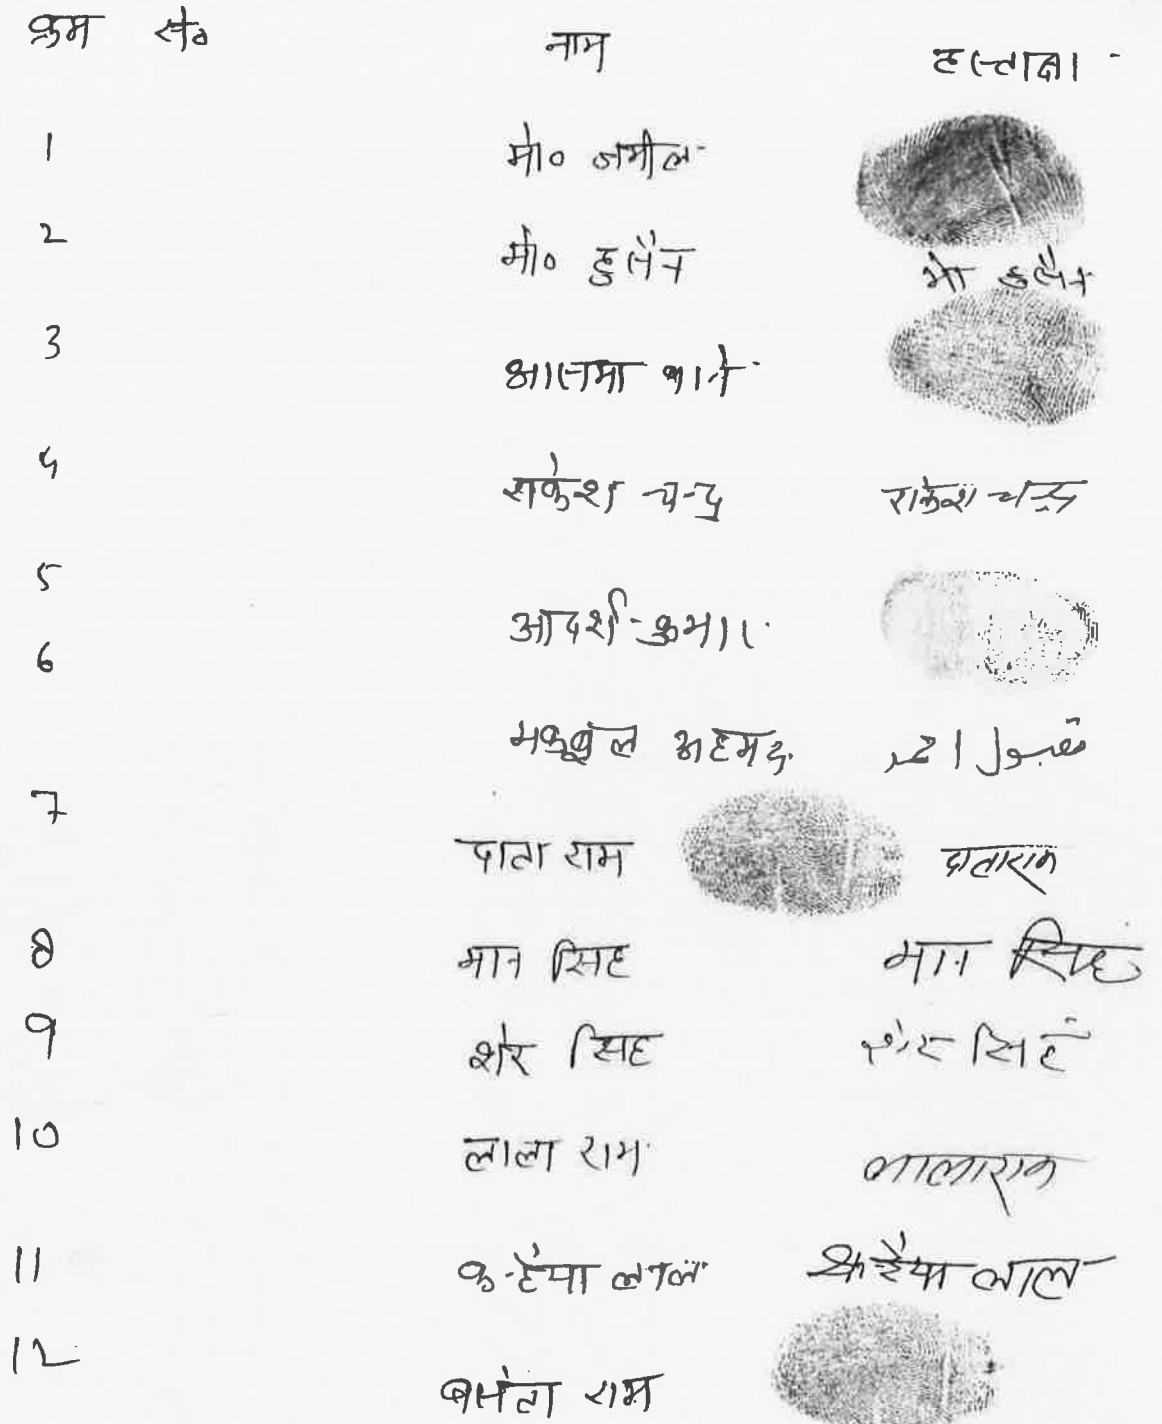 क्रम सं० नाम हस्ताक्षर
1 मो० जमील
2 मो० हुसैन मो हुसैन
3 आसमा
4 राकेश चन्द्र राकेश चन्द्र
5 आदर्श कुमार
6 मकबूल अहमद مقبول احمد
7 दाता राम दाताराम
8 मान सिह मान सिह
9 शेर सिह शेर सिहं
10 लाला राम लालाराम
11 कन्हैया लाल कन्हैया लाल
12 बसंता राम